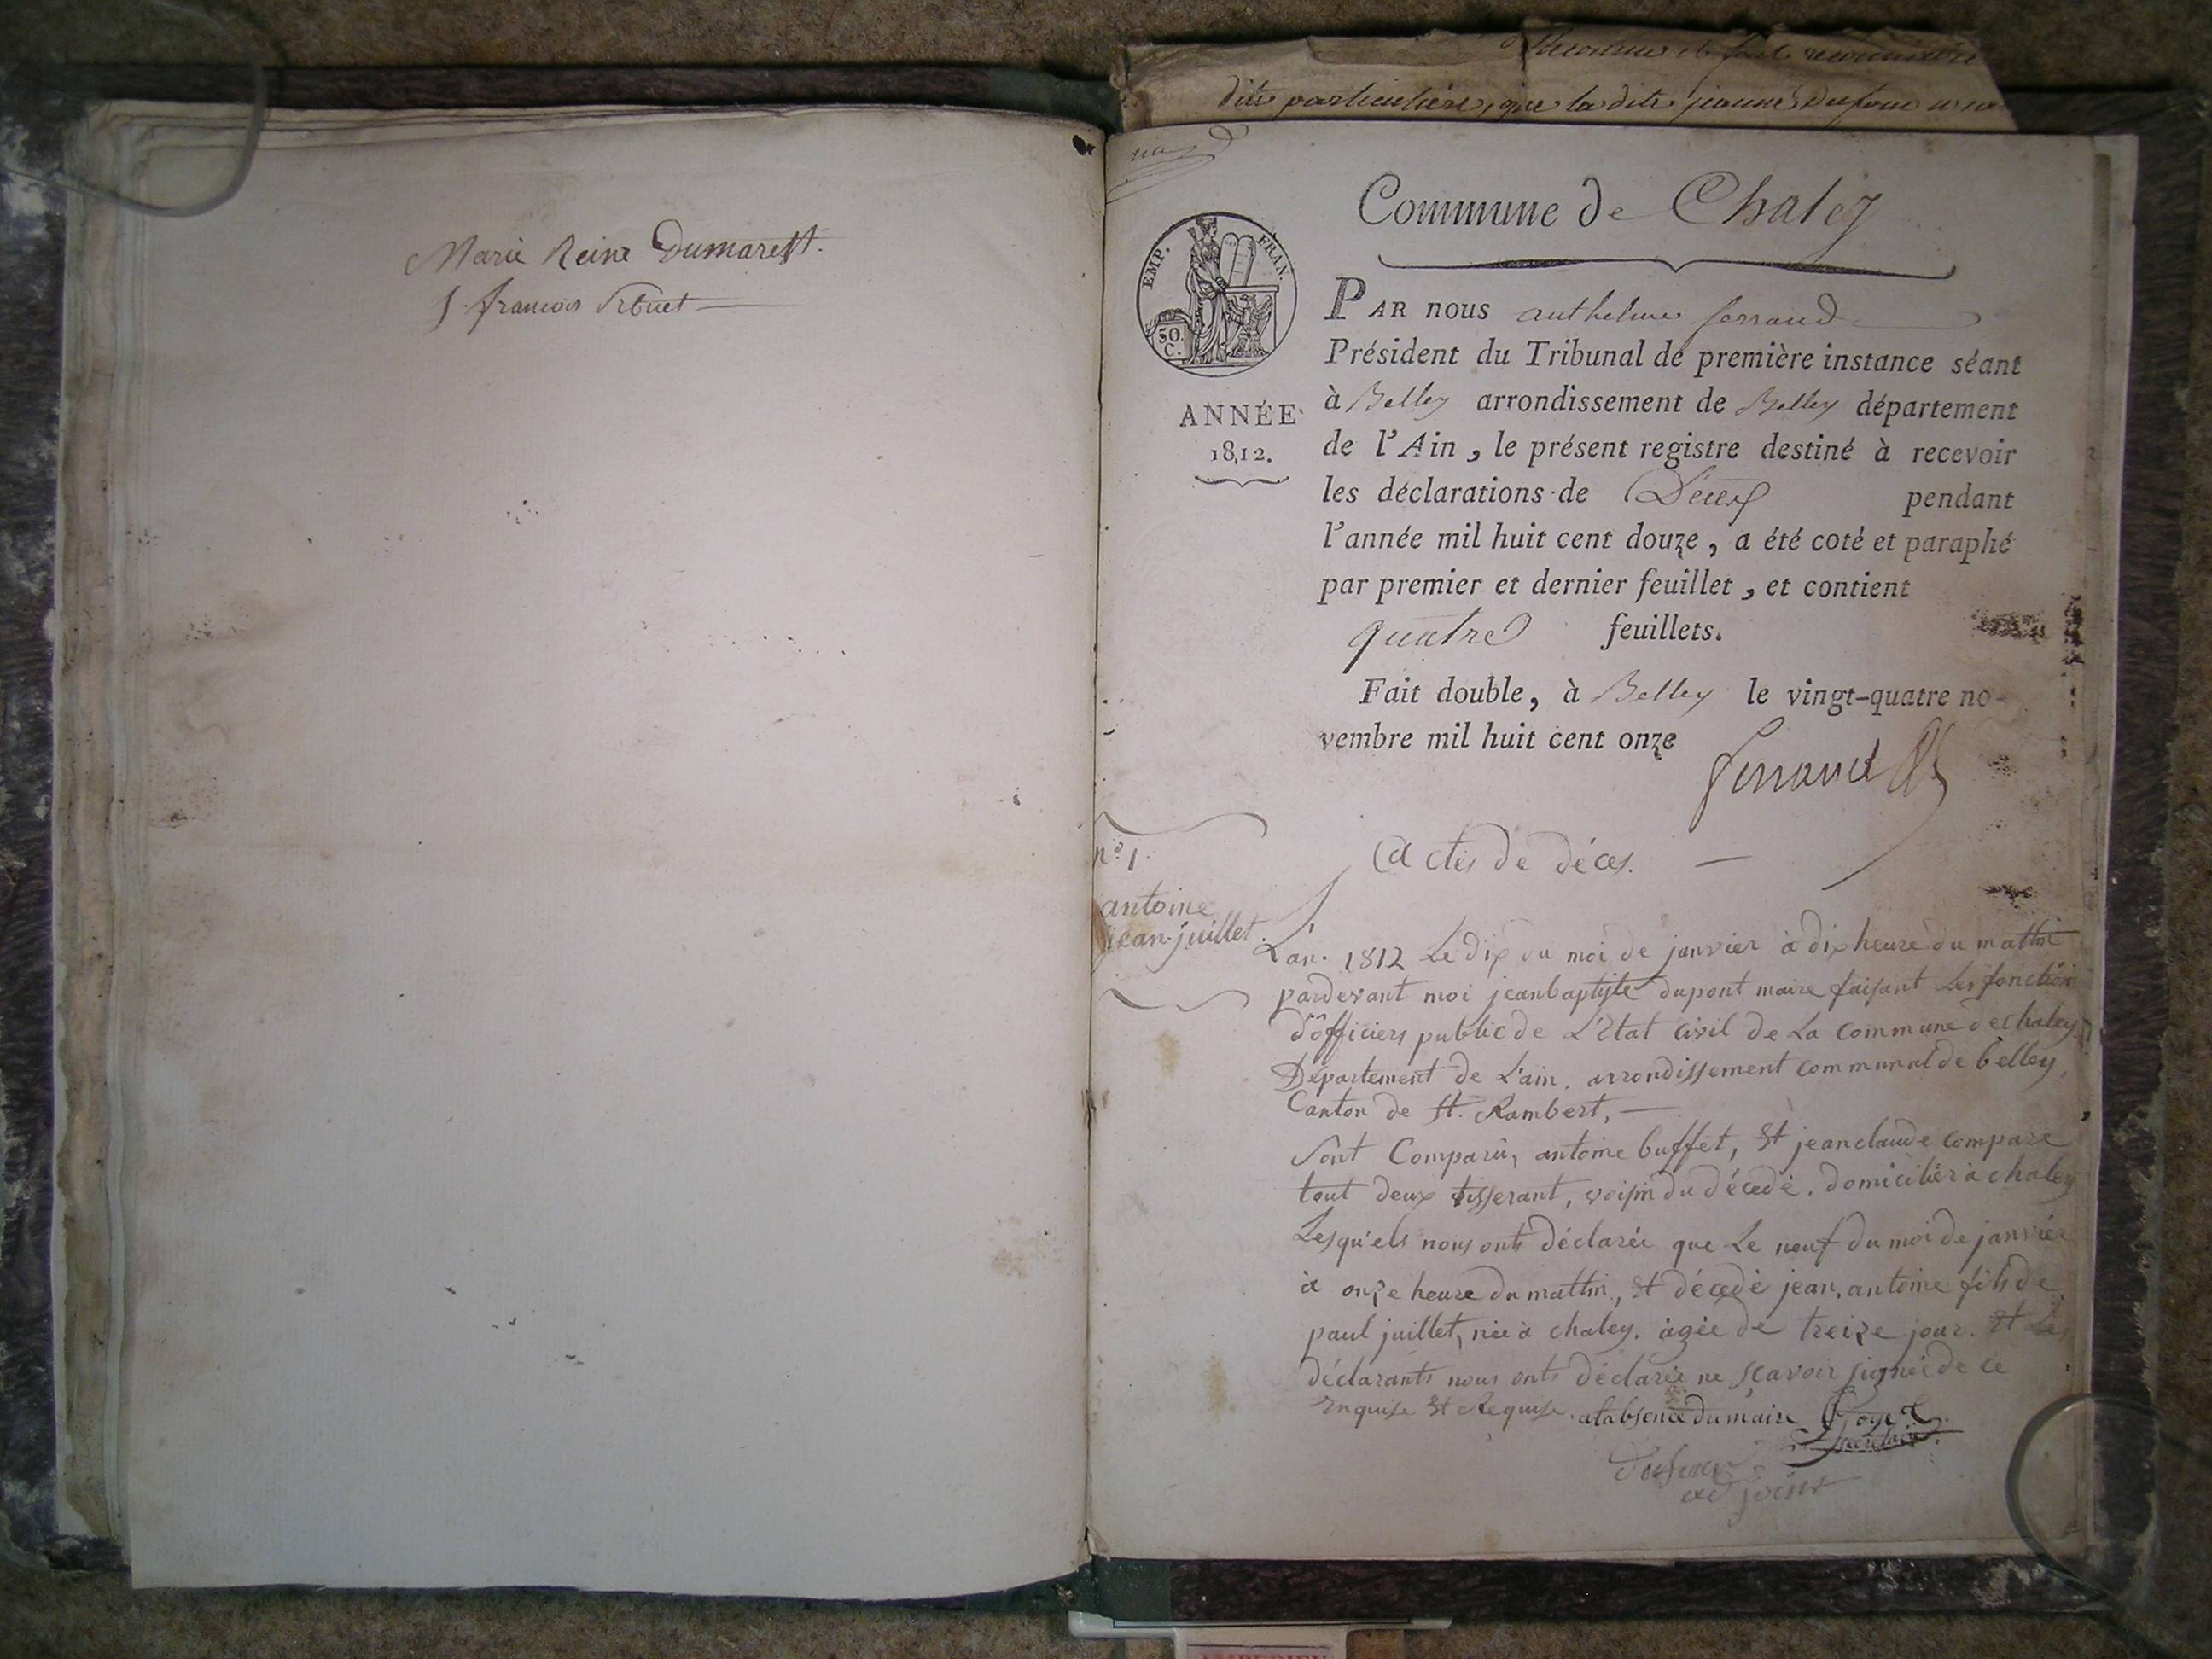 Marie Reine Dumarest.
françois
dite particulière, que la dite jeanne Dufour
Commune de Chaley
EMP. FRAN.
50.
C.
ANNÉE
1812.
PAR nous anthelme ferrand
Président du Tribunal de première instance séant
à Belley arrondissement de Belley département
de l'Ain, le présent registre destiné à recevoir
les déclarations de Décès pendant
l'année mil huit cent douze, a été coté et paraphé
par premier et dernier feuillet, et contient
quatre feuillets.
Fait double, à Belley le vingt-quatre no-
vembre mil huit cent onze
ferrand
n.o 1.
antoine
jean juillet.
Actes de déces.
L'an. 1812 Le dix du moi de janvier à dix heure du mattin
pardevant moi jeanbaptiste dupont maire faisant Les fonction
d'officiers public de L'Etat Civil de La Commune de chaley
Département de L'ain. arrondissement Communal de belley,
Canton de St. Rambert,
Sont Comparu, antoine buffet, Et jeanclaude compare
tout deux tisserant, voisin du décedé. domiciliér à chaley
Lesqu'els nous onts déclarée que Le neuf du moi de janvier
à onze heure du mattin, Et décedé jean, antoine fils de
paul juillet, née à chaley. agée de treize jour. Et Les
déclarants nous onts déclarée ne sçavoir signée de ce
Enquise Et Requise. alabsence du maire Goyet
Secretaire
Dufour
adjoint